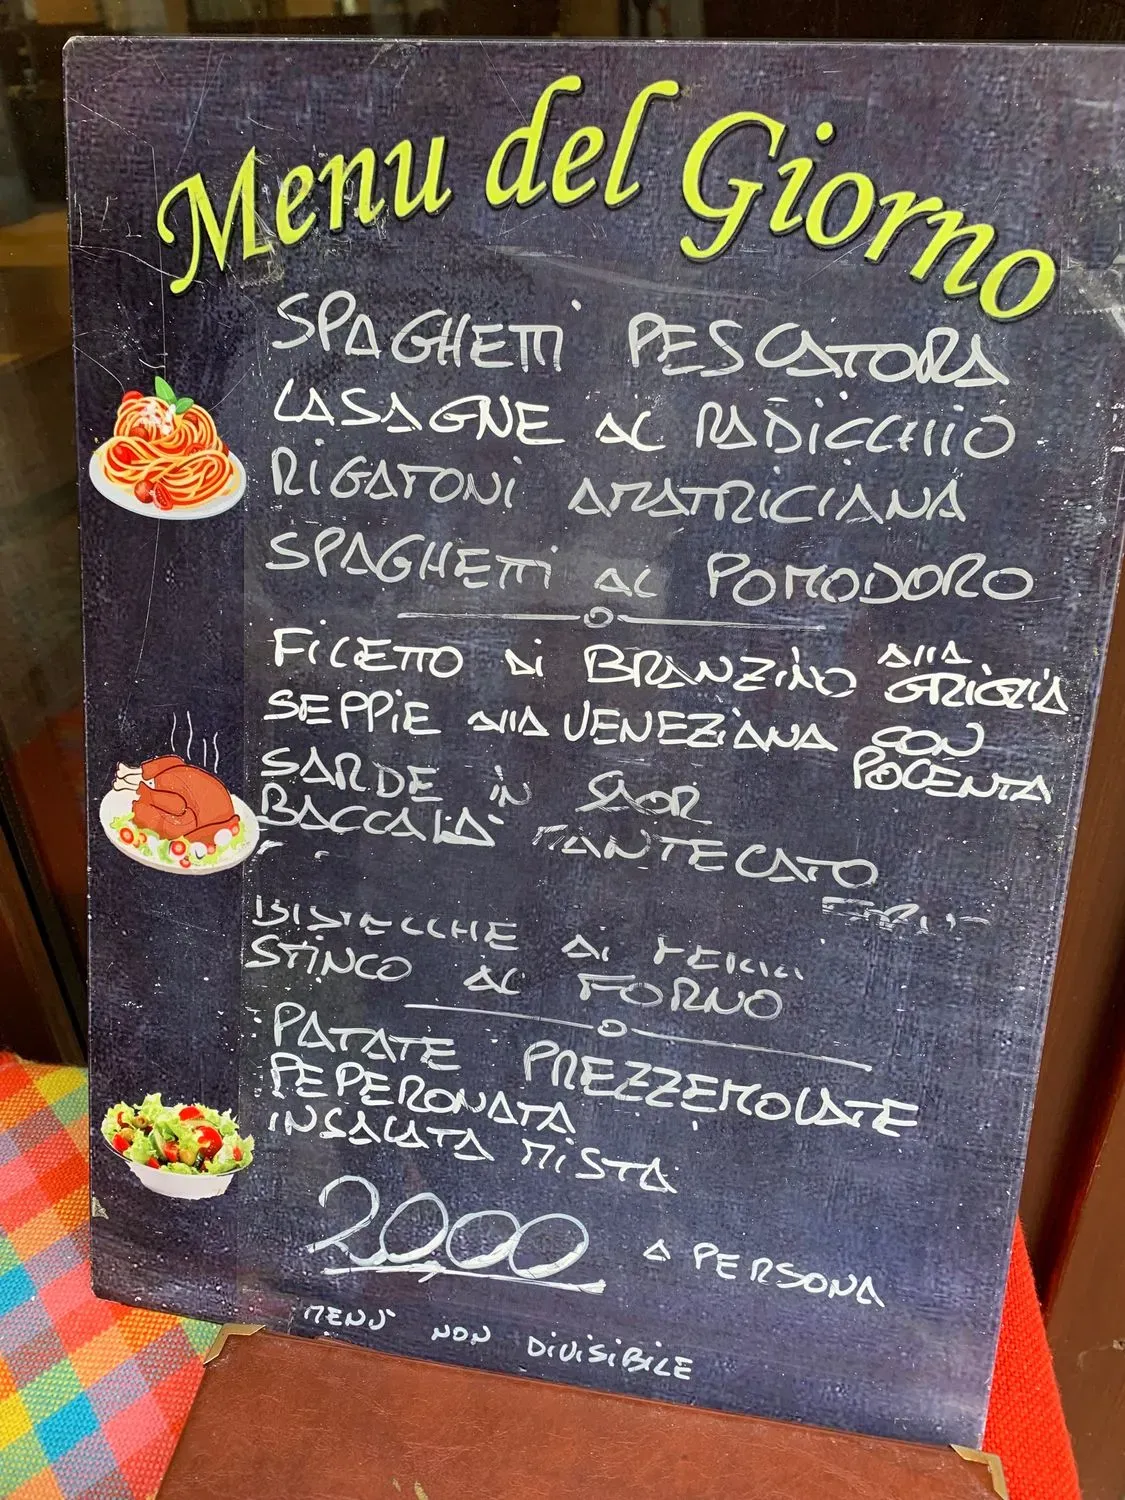 Menu del Giorno
SPAGHETTI PESCATORA
LASAGNE AL RADICCHIO
RIGATONI AMATRICIANA
SPAGHETTI AL POMODORO
FILETTO DI BRANZINO ALLA GRIGLIA
SEPPIE ALLA VENEZIANA CON POLENTA
SARDE IN SAOR
BACCALÀ MANTECATO
DI
STINCO AL FORNO
PATATE PREZZEMOLATE
PEPERONATA
INSALATA MISTA
20,00 A PERSONA
MENÙ NON DIVISIBILE